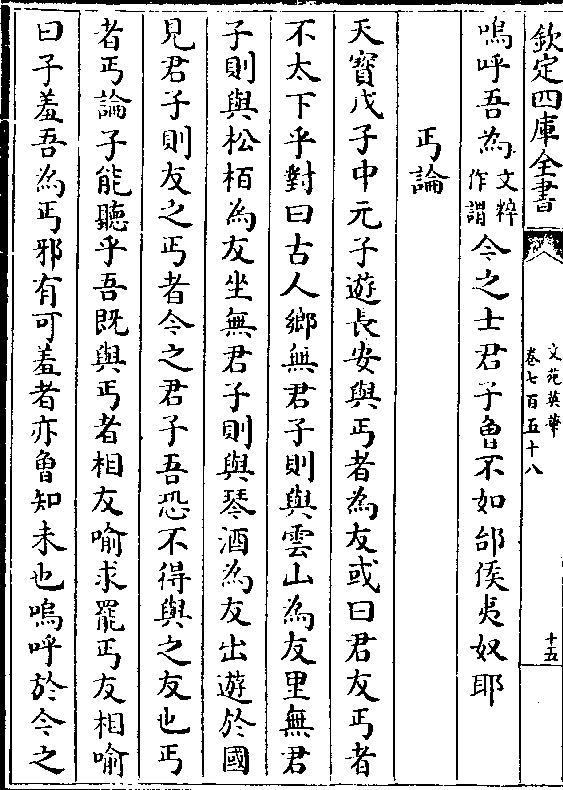 欽定四庫全書
文苑英華
卷七百五十八
十五
嗚呼吾為文粹作謂今之士君子曾不如邰侯夷奴耶
丐論
天寶戊子中元子遊長安與丐者為友或曰君友丐者
不太下乎對曰古人鄉無君子則與雲山為友里無君
子則與松栢為友坐無君子則與琴酒為友出遊於國
見君子則友之丐者今之君子吾恐不得與之友也丐
者丐論子能聽乎吾既與丐者相友喻求罷丐友相喻
曰子羞吾為丐邪有可羞者亦曾知未也嗚呼於今之